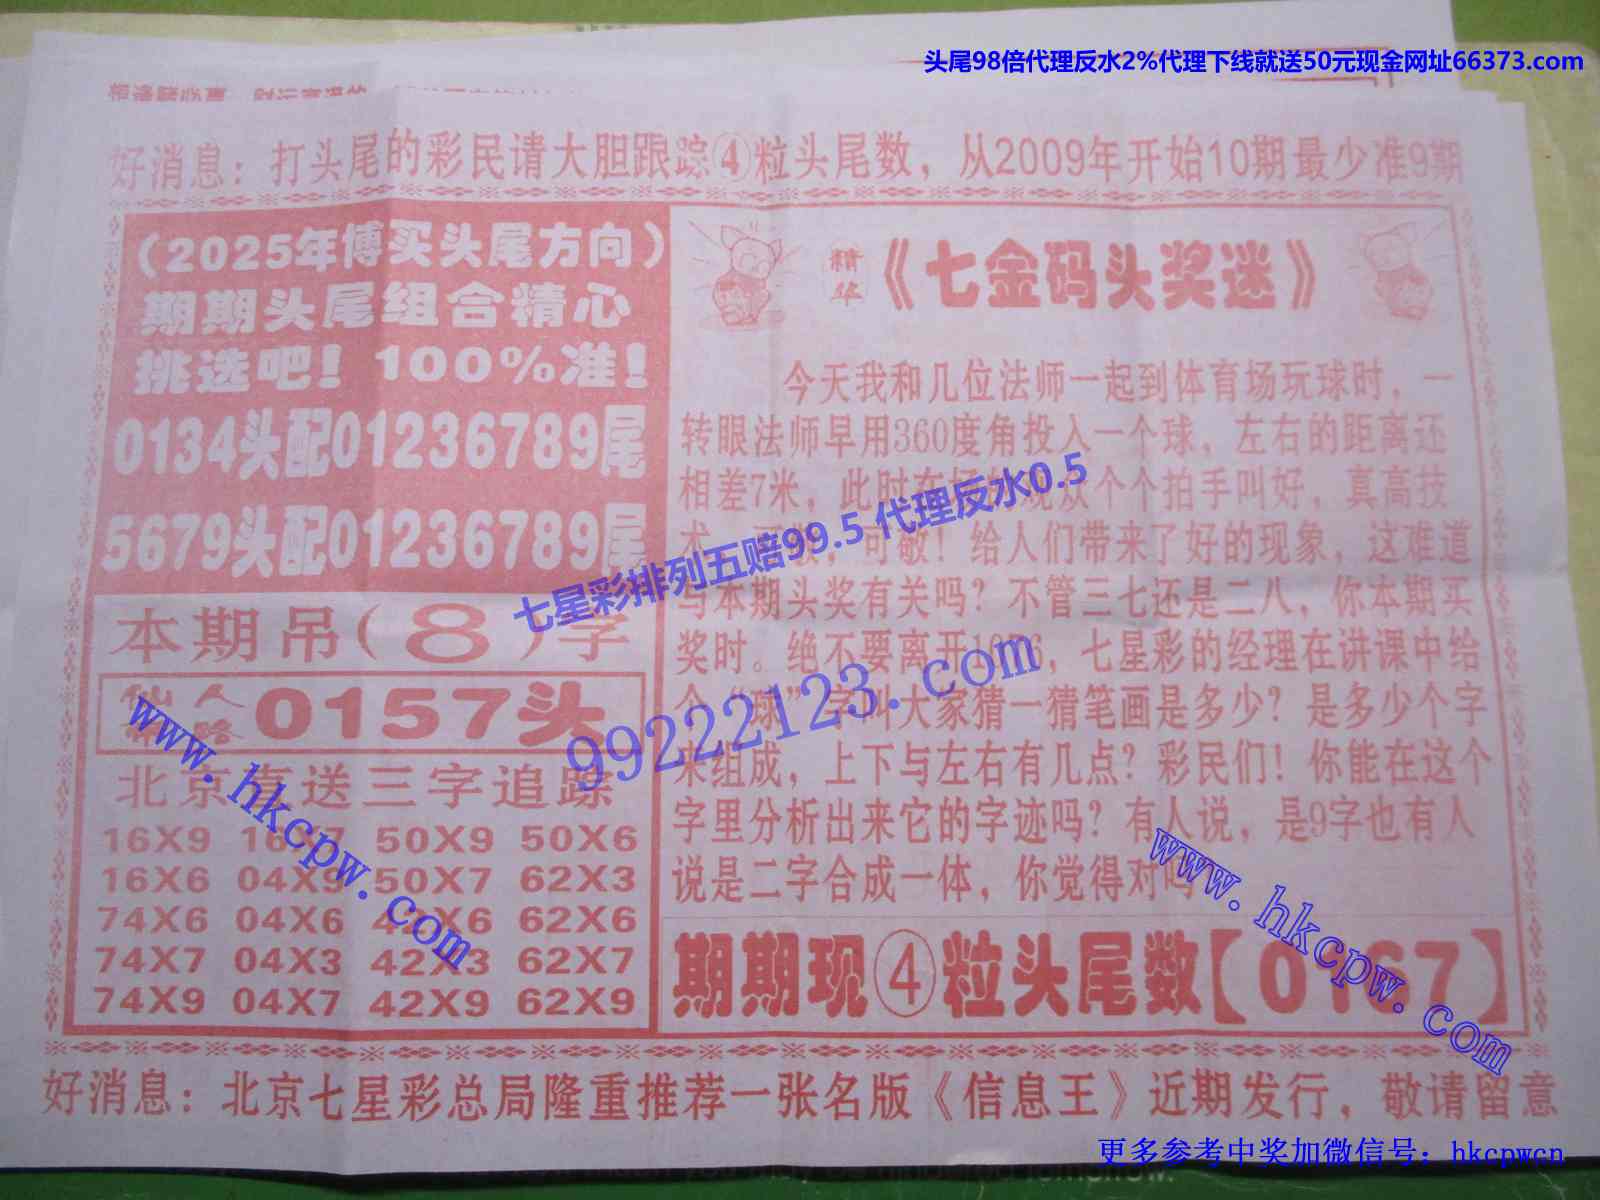 头尾98倍代理反水2%代理下线就送50元现金网址66373.com
好消息：打头尾的彩民请大胆跟踪④粒头尾数，从2009年开始10期最少准9期
（2025年博买头尾方向）
期期头尾组合精心
挑选吧！100%准！
0134头配01236789尾
5679头配01236789尾
本期吊（8）字
仙人
路 0157头
北京 送三字追踪
16X9 16X7 50X9 50X6
16X6 04X9 50X7 62X3
74X6 04X6 42X6 62X6
74X7 04X3 42X3 62X7
74X9 04X7 42X9 62X9
精华《七金码头奖迷》
今天我和几位法师一起到体育场玩球时，一
转眼法师早用360度角投入一个球，左右的距离还
相差7米，此时在 观众个个拍手叫好，真高技
术， 可敬！给人们带来了好的现象，这难道
与本期头奖有关吗？不管三七还是二八，你本期买
奖时。绝不要离开10 6，七星彩的经理在讲课中给
个“球”字叫大家猜一猜笔画是多少？是多少个字
来组成，上下与左右有几点？彩民们！你能在这个
字里分析出来它的字迹吗？有人说，是9字也有人
说是二字合成一体，你觉得对吗
期期现④粒头尾数【0167】
好消息：北京七星彩总局隆重推荐一张名版《信息王》近期发行，敬请留意
七星彩排列五赔99.5 代理反水0.5
99222123.com
www.hkcpw.com
www.hkcpw.com
更多参考中奖加微信号：hkcpwcn